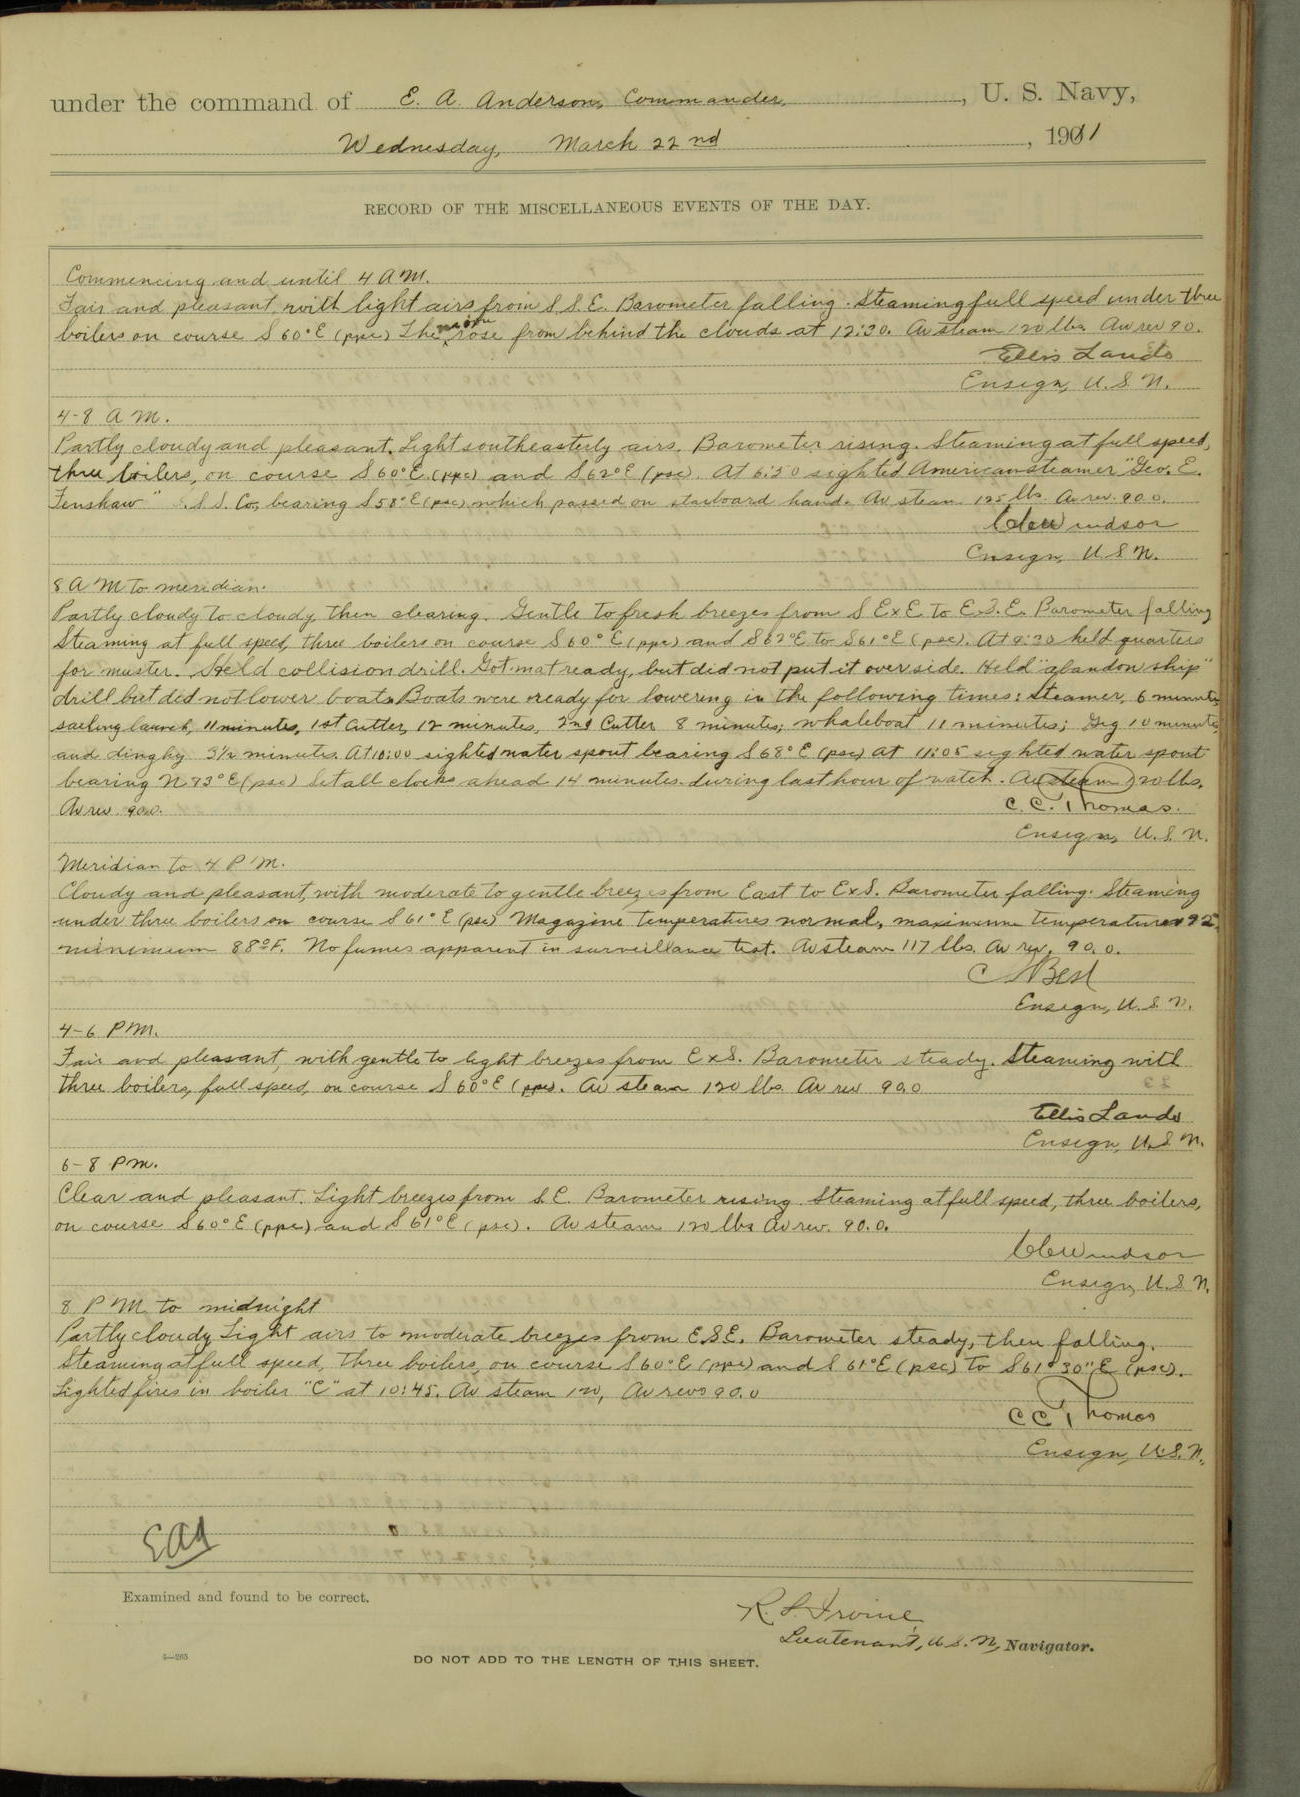 under the command of E. A. Anderson, Commander, U. S. Navy,
Wednesday, March 22nd, 1911
RECORD OF THE MISCELLANEOUS EVENTS OF THE DAY.
Commencing and until 4 A M.
Fair and pleasant, with light airs from S.S.E. Barometer falling. Steaming full speed under three
boilers on course S 60° E (ppc) The moon rose from behind the clouds at 12:30. Av steam 120 lbs. Av rev 90.
Ellis Lando
Ensign, U.S.N.
4-8 A M.
Partly cloudy and pleasant. Light southeasterly airs. Barometer rising. Steaming at full speed,
three boilers, on course S 60° E (ppc) and S 62° E (psc). At 6:50 sighted American steamer "Geo. E.
Fenshaw" S.S. Co, bearing S 58° E (psc) which passed on starboard hand. Av steam 125 lbs. Av rev. 90.0.
Windsor
Ensign, U.S.N.
8 A M to meridian.
Partly cloudy to cloudy then clearing. Gentle to fresh breezes from S E x E to E.S.E. Barometer falling
Steaming at full speed, three boilers on course S 60° E (ppc) and S 62° E to S 61° E (psc). At 9:30 held quarters
for muster. Held collision drill. Got mat ready, but did not put it over side. Held "abandon ship"
drill but did not lower boats. Boats were ready for lowering in the following times: Steamer, 6 minutes
sailing launch, 11 minutes, 1st Cutter, 12 minutes, 2nd Cutter 8 minutes; whaleboat 11 minutes; Gig 10 minutes,
and dinghy 3½ minutes. At 10:00 sighted water spout bearing S 68° E (psc) at 11:05 sighted water spout
bearing N 83° E (psc) Set all clocks ahead 14 minutes during last hour of watch. Av steam 120 lbs.
Av rev. 90.0.
C. C. Thomas.
Ensign, U.S.N.
Meridian to 4 P.M.
Cloudy and pleasant, with moderate to gentle breezes from East to E x S. Barometer falling. Steaming
under three boilers on course S 61° E (psc) Magazine temperatures normal, maximum temperature 92°,
minimum 88° F. No fumes apparent in surveillance test. Av steam 117 lbs. Av rev. 90.0.
C Best
Ensign, U.S.N.
4-6 P.M.
Fair and pleasant, with gentle to light breezes from E x S. Barometer steady. Steaming with
three boilers, full speed, on course S 60° E (ppc). Av steam 120 lbs Av rev 90.0
Ellis Lando
Ensign, U.S.N.
6-8 P.m.
Clear and pleasant. Light breezes from S.E. Barometer rising. Steaming at full speed, three boilers,
on course S 60° E (ppc) and S 61° E (psc). Av steam 120 lbs Av rev. 90.0.
Windsor
Ensign, U.S.N.
8 P M to midnight
Partly cloudy Light airs to moderate breezes from E.S.E. Barometer steady, then falling.
Steaming at full speed, three boilers, on course S 60° E (ppc) and S 61° E (psc) to S 61° 30" E (psc).
Lighted fires in boiler "C" at 10:45. Av steam 120, Av revs 90.0
C C Thomas
Ensign, U.S.N.
EAA
Examined and found to be correct.
R. L. Irvine
Lieutenant, U.S.N, Navigator.
6—265
DO NOT ADD TO THE LENGTH OF THIS SHEET.